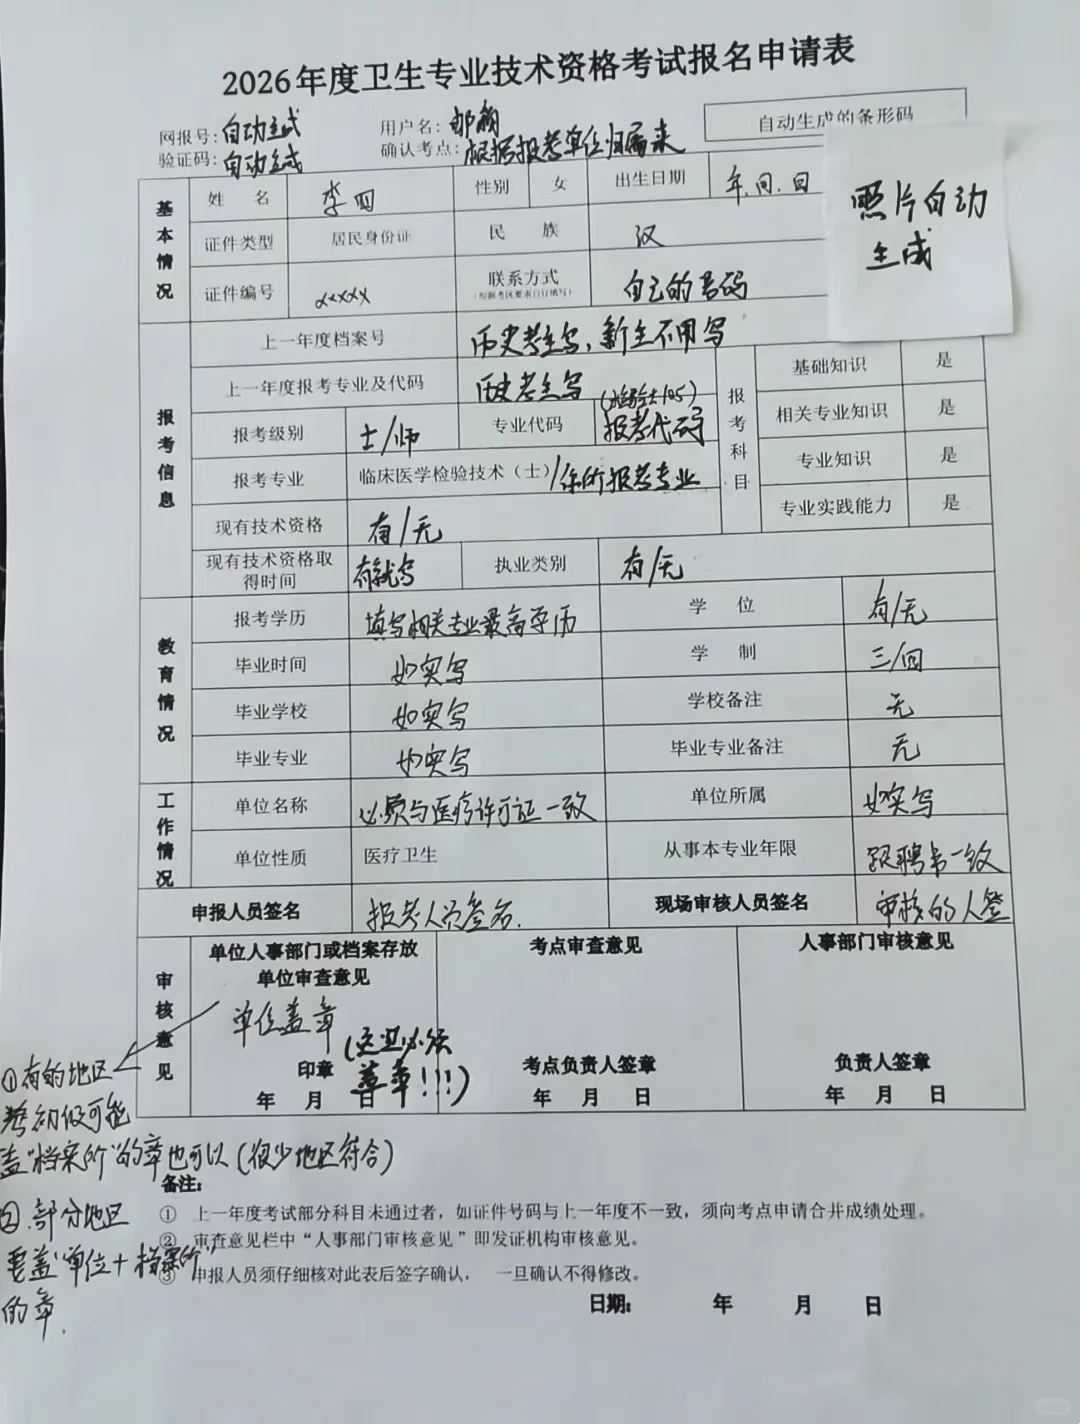 2026年度卫生专业技术资格考试报名申请表
网报号: 自动生成 用户名: 邮箱 自动生成的条形码
验证码: 自动生成 确认考点: 根据报考单位归属来
照片自动
生成
基本情况
姓 名 李四 性别 女 出生日期 年.月.日
证件类型 居民身份证 民 族 汉
证件编号 xxxxx 联系方式 自己的号码
(根据考区要求自行填写)
报考信息
上一年度档案号 历史考生写、新生不用写
上一年度报考专业及代码 历史考生写
报考级别 士/师 专业代码 (检验士105) 报考代码
报考专业 临床医学检验技术（士）/你所报考专业
现有技术资格 有/无
现有技术资格取得时间 有就写 执业类别 有/无
报考科目
基础知识 是
相关专业知识 是
专业知识 是
专业实践能力 是
教育情况
报考学历 填写相关专业最高学历 学 位 有/无
毕业时间 如实写 学 制 三/四
毕业学校 如实写 学校备注 无
毕业专业 如实写 毕业专业备注 无
工作情况
单位名称 必须与医疗许可证一致 单位所属 如实写
单位性质 医疗卫生 从事本专业年限 跟聘书一致
申报人员签名 报考人员签名. 现场审核人员签名 审核的人签
审核意见
单位人事部门或档案存放
单位审查意见
单位盖章
(这里必须
盖章!!!)
印章
年 月 日
考点审查意见
考点负责人签章
年 月 日
人事部门审核意见
负责人签章
年 月 日
①有的地区
考初级可能
盖“档案所”的章也可以(很少地区符合)
②.部分地区
要盖“单位+档案所”
的章.
备注:
① 上一年度考试部分科目未通过者，如证件号码与上一年度不一致，须向考点申请合并成绩处理。
② 审查意见栏中“人事部门审核意见”即发证机构审核意见。
③ 申报人员须仔细核对此表后签字确认， 一旦确认不得修改。
日期: 年 月 日